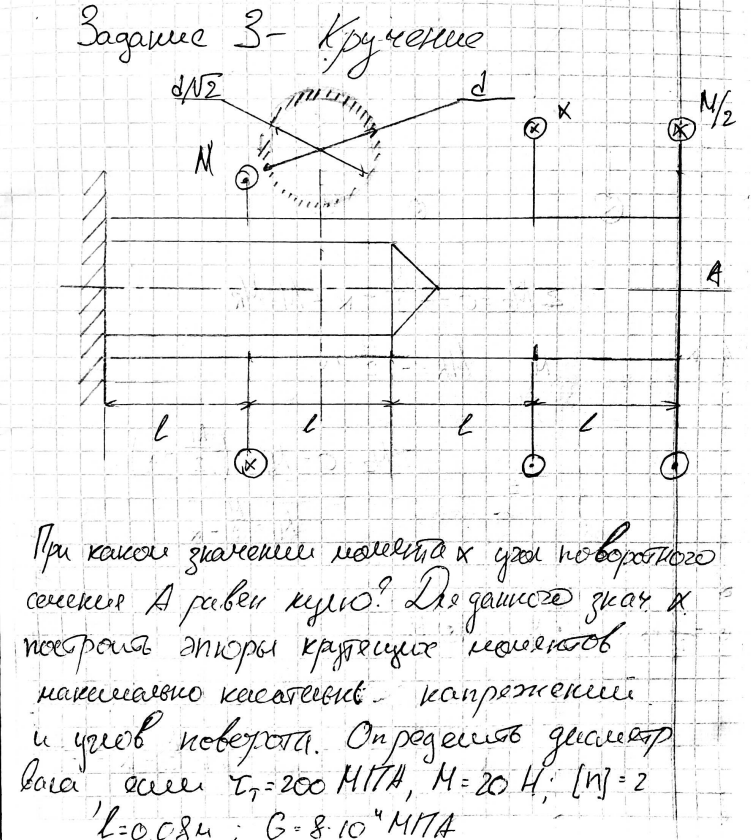 Задание 3- Кручение
d/√2
d
M
x
M/2
A
l
l
l
l
При каком значении момента x угол поворотного
сечения A равен нулю? Для данного знач. x
построить эпюры крутящих моментов
максимально касательн. напряжений
и углов поворота. Определить диаметр
вала, если τт=200 МПА, M=20 Н; [n]=2
l=0,08м; G=8·10⁴ МПА